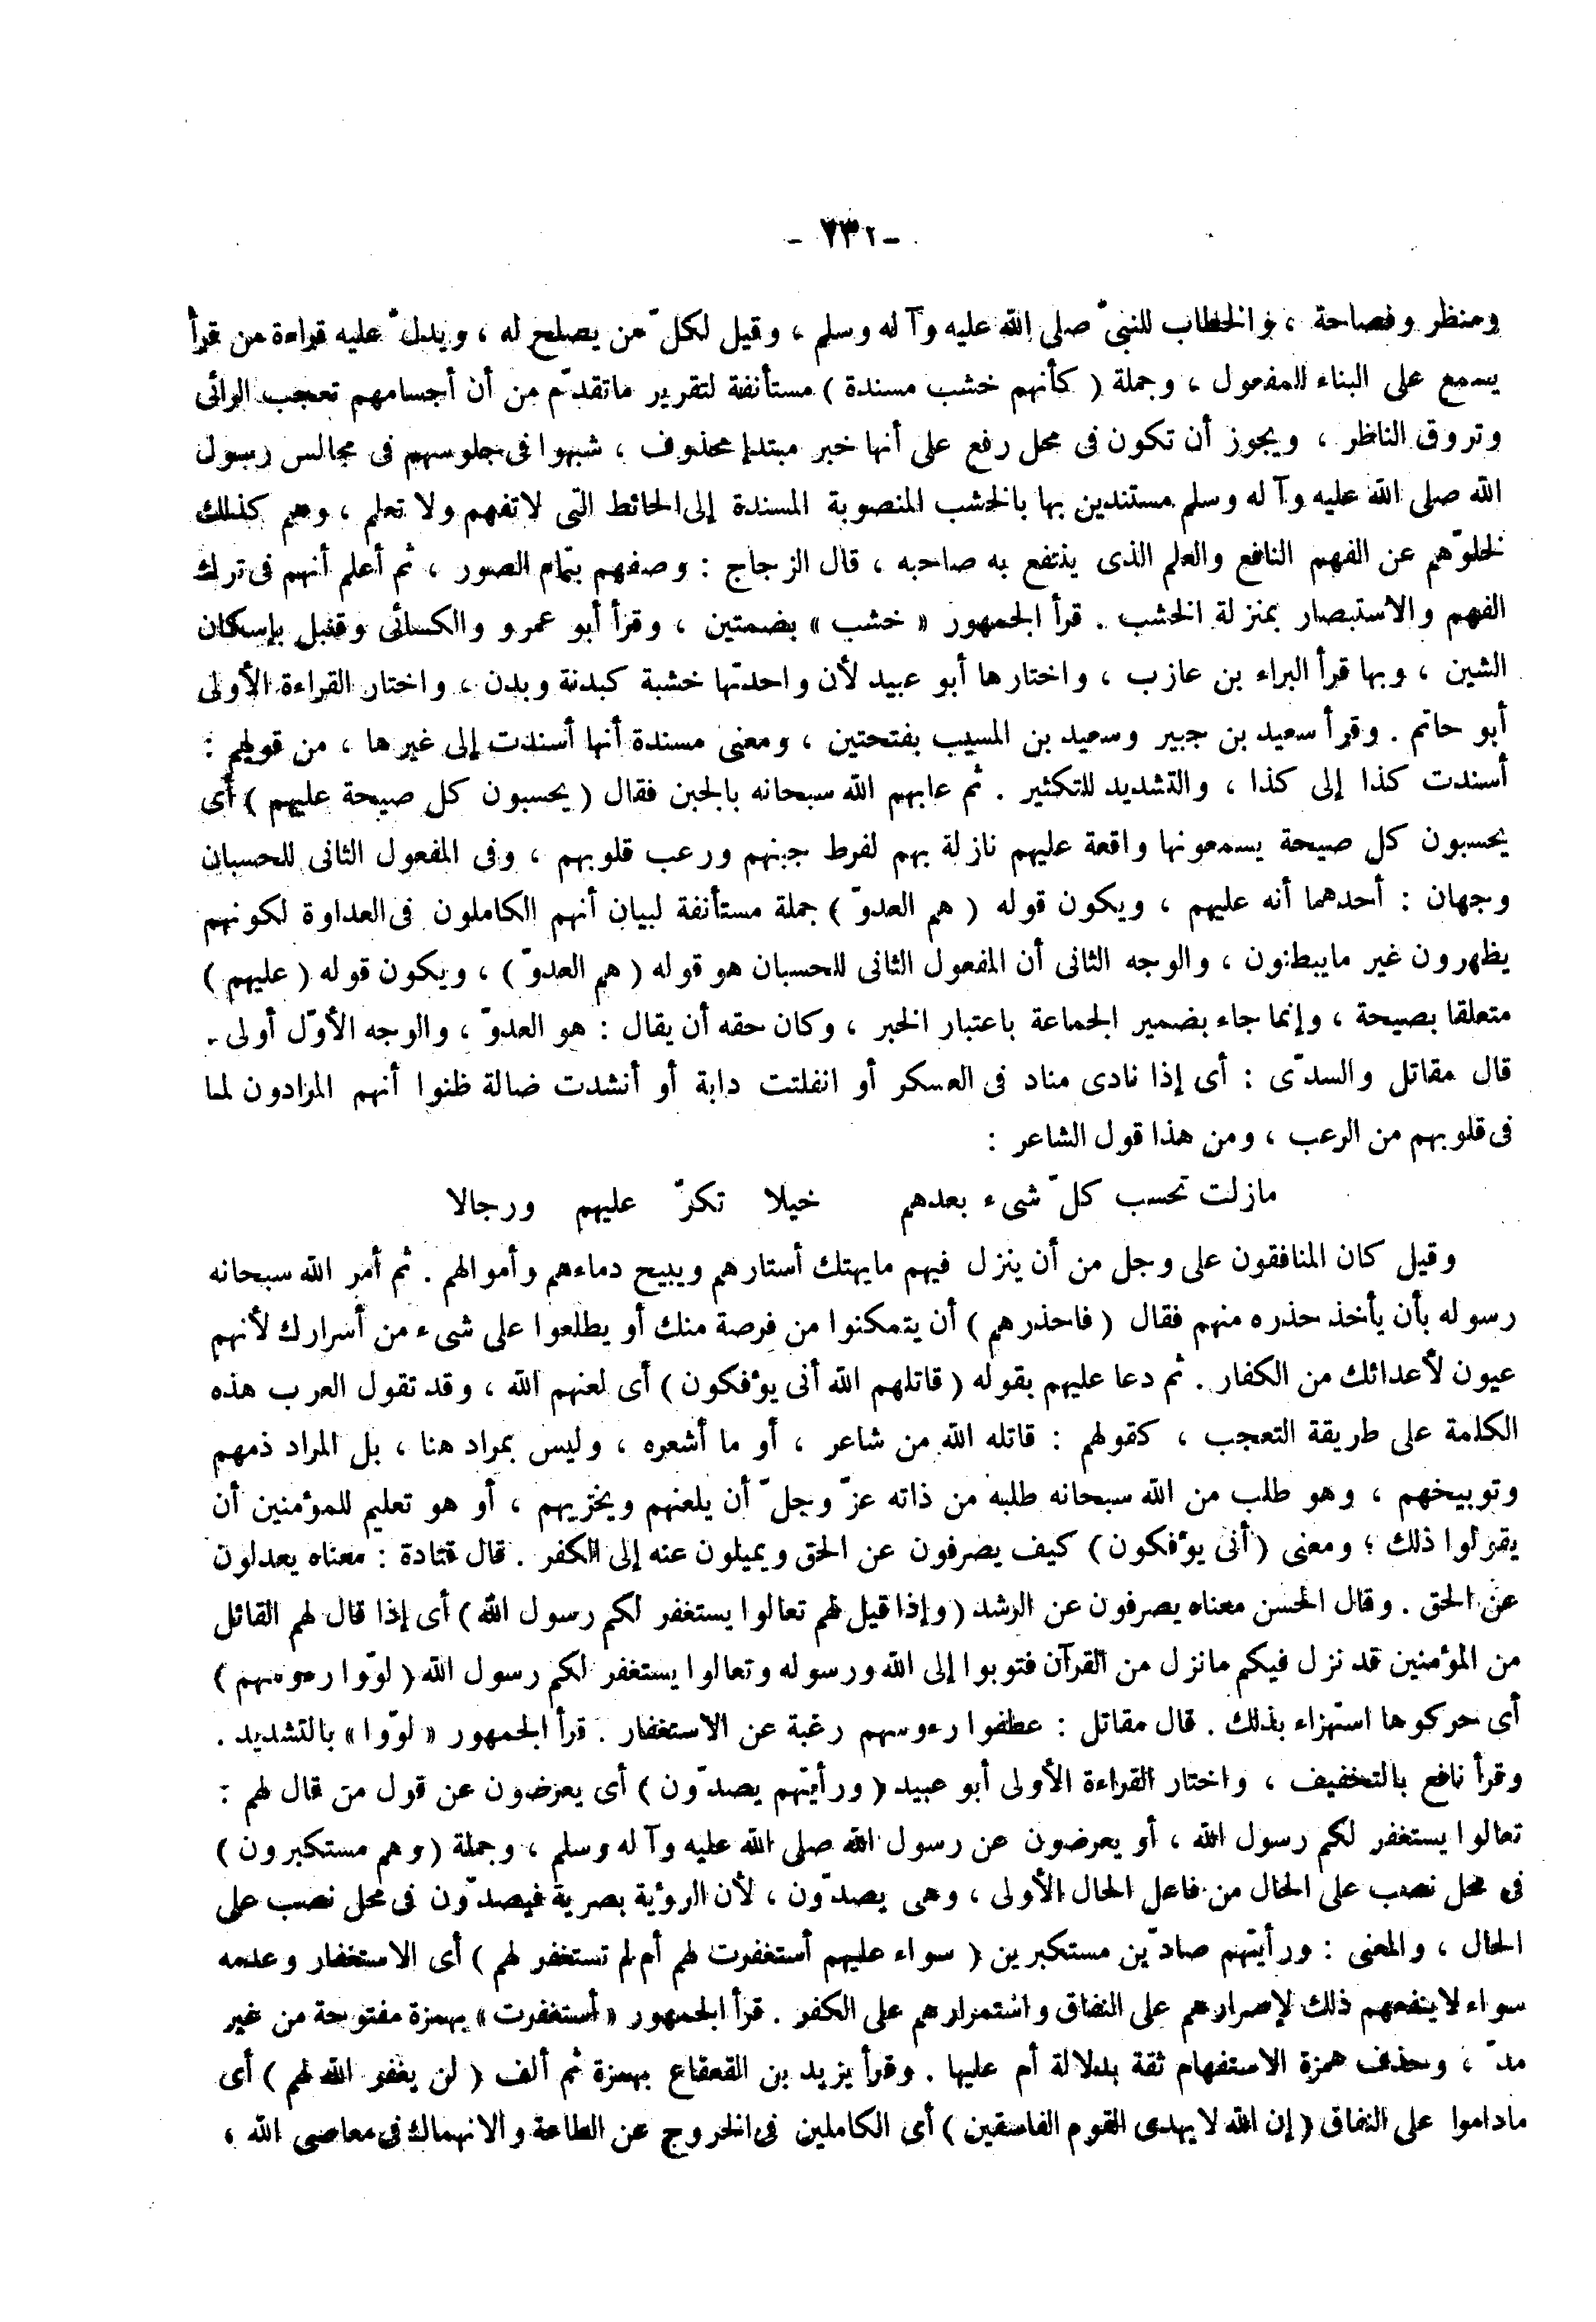 - ٢٣٢ -
ومنظر وفصاحة ، والخطاب للنبىّ صلى الله عليه وآ له وسلم ، وقيل لكلّ من يصلح له ، ويدلّ عليه قراءة من قرأ
يسمع على البناء للمفعول ، وجملة ( كأنهم خشب مسندة ) مستأنفة لتقرير ماتقدّم من أن أجسامهم تعجب الرائى
وتروق الناظر ، ويجوز أن تكون فى محل رفع على أنها خبر مبتدإ محذوف ، شبهوا فى جلوسهم فى مجالس رسول
الله صلى الله عليه وآ له وسلم مستندين بها بالخشب المنصوبة المسندة إلى الحائط التى لاتفهم ولا تعلم ، وهم كذلك
لخلوّهم عن الفهم النافع والعلم الذى ينتفع به صاحبه ، قال الزجاج : وصفهم بتمام الصور ، ثم أعلم أنهم فى ترك
الفهم والاستبصار بمنزلة الخشب . قرأ الجمهور « خشب » بضمتين ، وقرأ أبو عمرو والكسائى وقنبل بإسكان
الشين ، وبها قرأ البراء بن عازب ، واختارها أبو عبيد لأن واحدتها خشبة كبدنة وبدن ، واختار القراءة الأولى
أبو حاتم . وقرأ سعيد بن جبير وسعيد بن المسيب بفتحتين ، ومعنى مسندة أنها أسندت إلى غيرها ، من قولهم :
أسندت كذا إلى كذا ، والتشديد للتكثير . ثم عابهم الله سبحانه بالجبن فقال ( يحسبون كل صيحة عليهم ) أى
يحسبون كل صيحة يسمعونها واقعة عليهم نازلة بهم لفرط جبنهم ورعب قلوبهم ، وفى المفعول الثانى للحسبان
وجهان : أحدهما أنه عليهم ، ويكون قوله ( هم العدوّ ) جملة مستأنفة لبيان أنهم الكاملون فى العداوة لكونهم
يظهرون غير مايبطنون ، والوجه الثانى أن المفعول الثانى للحسبان هو قوله ( هم العدوّ ) ، ويكون قوله ( عليهم )
متعلقا بصيحة ، وإنما جاء بضمير الجماعة باعتبار الخبر ، وكان حقه أن يقال : هو العدوّ ، والوجه الأوّل أولى .
قال مقاتل والسدّى : أى إذا نادى مناد فى العسكر أو انفلتت دابة أو أنشدت ضالة ظنوا أنهم المرادون لما
فى قلوبهم من الرعب ، ومن هذا قول الشاعر :
مازلت تحسب كلّ شىء بعدهم خيلا تكرّ عليهم ورجالا
وقيل كان المنافقون على وجل من أن ينزل فيهم مايهتك أستارهم ويبيح دماءهم وأموالهم . ثم أمر الله سبحانه
رسوله بأن يأخذ حذره منهم فقال ( فاحذرهم ) أن يتمكنوا من فرصة منك أو يطلعوا على شىء من أسرارك لأنهم
عيون لأعدائك من الكفار . ثم دعا عليهم بقوله ( قاتلهم الله أنى يؤفكون ) أى لعنهم الله ، وقد تقول العرب هذه
الكلمة على طريقة التعجب ، كقولهم : قاتله الله من شاعر ، أو ما أشعره ، وليس بمراد هنا ، بل المراد ذمهم
وتوبيخهم ، وهو طلب من الله سبحانه طلبه من ذاته عزّ وجلّ أن يلعنهم ويخزيهم ، أو هو تعليم للمؤمنين أن
يقولوا ذلك ؛ ومعنى ( أنى يؤفكون ) كيف يصرفون عن الحق ويميلون عنه إلى الكفر . قال قتادة : معناه يعدلون
عن الحق . وقال الحسن معناه يصرفون عن الرشد ( وإذا قيل لهم تعالوا يستغفر لكم رسول الله ) أى إذا قال لهم القائل
من المؤمنين قد نزل فيكم مانزل من القرآن فتوبوا إلى الله ورسوله وتعالوا يستغفر لكم رسول الله ( لوّوا رءوسهم )
أى حركوها استهزاء بذلك . قال مقاتل : عطفوا رءوسهم رغبة عن الاستغفار . قرأ الجمهور « لوّوا » بالتشديد .
وقرأ نافع بالتخفيف ، واختار القراءة الأولى أبو عبيد ( ورأيتهم يصدّون ) أى يعرضون عن قول من قال لهم :
تعالوا يستغفر لكم رسول الله ، أو يعرضون عن رسول الله صلى الله عليه وآ له وسلم ، وجملة ( وهم مستكبرون )
فى محل نصب على الحال من فاعل الحال الأولى ، وهى يصدّون ، لأن الرؤية بصرية فيصدّون فى محل نصب على
الحال ، والمعنى : ورأيتهم صادّين مستكبرين ( سواء عليهم أستغفرت لهم أم لم تستغفر لهم ) أى الاستغفار وعدمه
سواء لاينفعهم ذلك لإصرارهم على النفاق واستمرارهم على الكفر . قرأ الجمهور « أستغفرت » بهمزة مفتوحة من غير
مدّ ، وحذف همزة الاستفهام ثقة بدلالة أم عليها . وقرأ يزيد بن القعقاع بهمزة ثم ألف ( لن يغفر الله لهم ) أى
ماداموا على النفاق ( إن الله لا يهدى القوم الفاسقين ) أى الكاملين فى الخروج عن الطاعة والانهماك فى معاصى الله ،